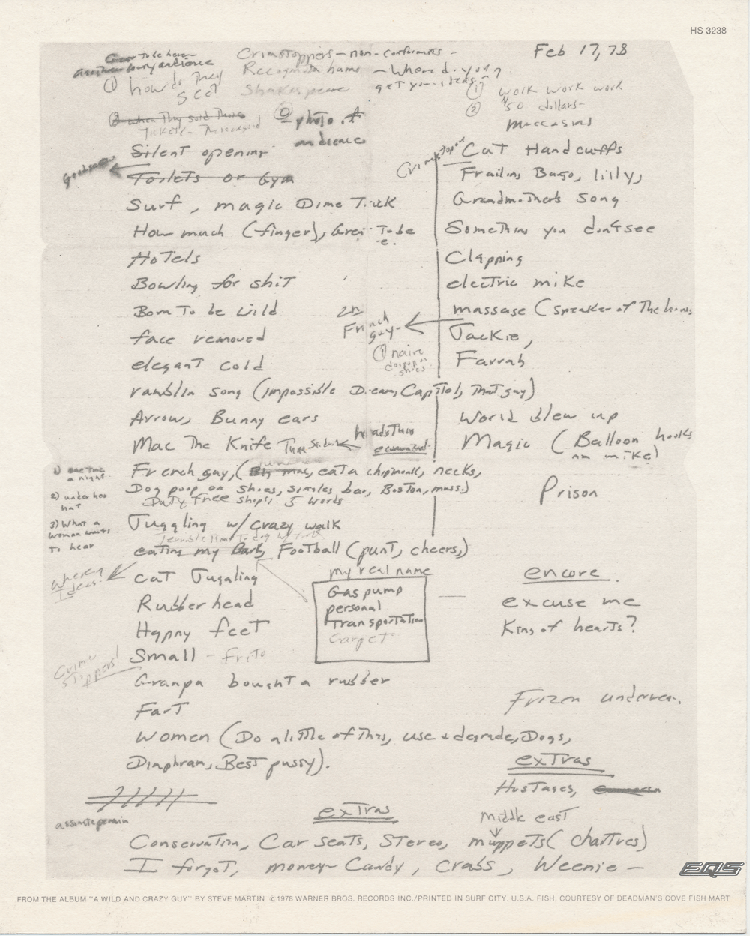 HS 3238
Feb 17, 78
Crimestoppers - non-conformers -
another audience
Recognition hams - Where do you
get your ideas
① how do they
Shakespeare
① work work work
② 50 dollars -
moccasins
② photo of
audience
Silent opening
Crimestoppers
Cat Handcuffs
Toilets or Gym
Frailing Banjo, lilly,
Surf, magic Dime Trick
Grandmothers song
How much (finger), To be
Something you dont see
Hotels
Clapping
Bowling for shit
electric mike
Born To be Wild
massage (speaker of The house
French guy
face removed
Jackie,
elegant cold
Farrah
ramblin song (impossible Dream, Capitol, that guy)
Arrow, Bunny ears
World blew up
Mac The Knife
Magic (Balloon
on mike)
1) one time
a night
French guy, ( eat a chipmunk, necks,
Dog poop on shoes, similes bar, Boston, mass)
Prison
Duty Free shops 5 words
3) What a
woman wants
To hear
Juggling w/ crazy walk
eating my Football (punt, cheers,)
Where
Ideas?
cat Juggling
my real name
encore
Rubber head
Gas pump
personal
Transportation
Carpet
excuse me
Happy feet
King of hearts?
Small -
Crime
Stoppers!
Granpa bought a rubber
Frozen underwear.
Fart
Women (Do a little of this, use + degrade, Dogs,
Diaphram, Best pussy).
extras
Hostages,
extras
middle east
Conservation, Car seats, Stereo, muppets (
I forgot, money - Candy, crabs, Weenie -
EQS
FROM THE ALBUM "A WILD AND CRAZY GUY" BY STEVE MARTIN ©1978 WARNER BROS. RECORDS INC./PRINTED IN SURF CITY, U.S.A. FISH, COURTESY OF DEADMAN'S COVE FISH MART